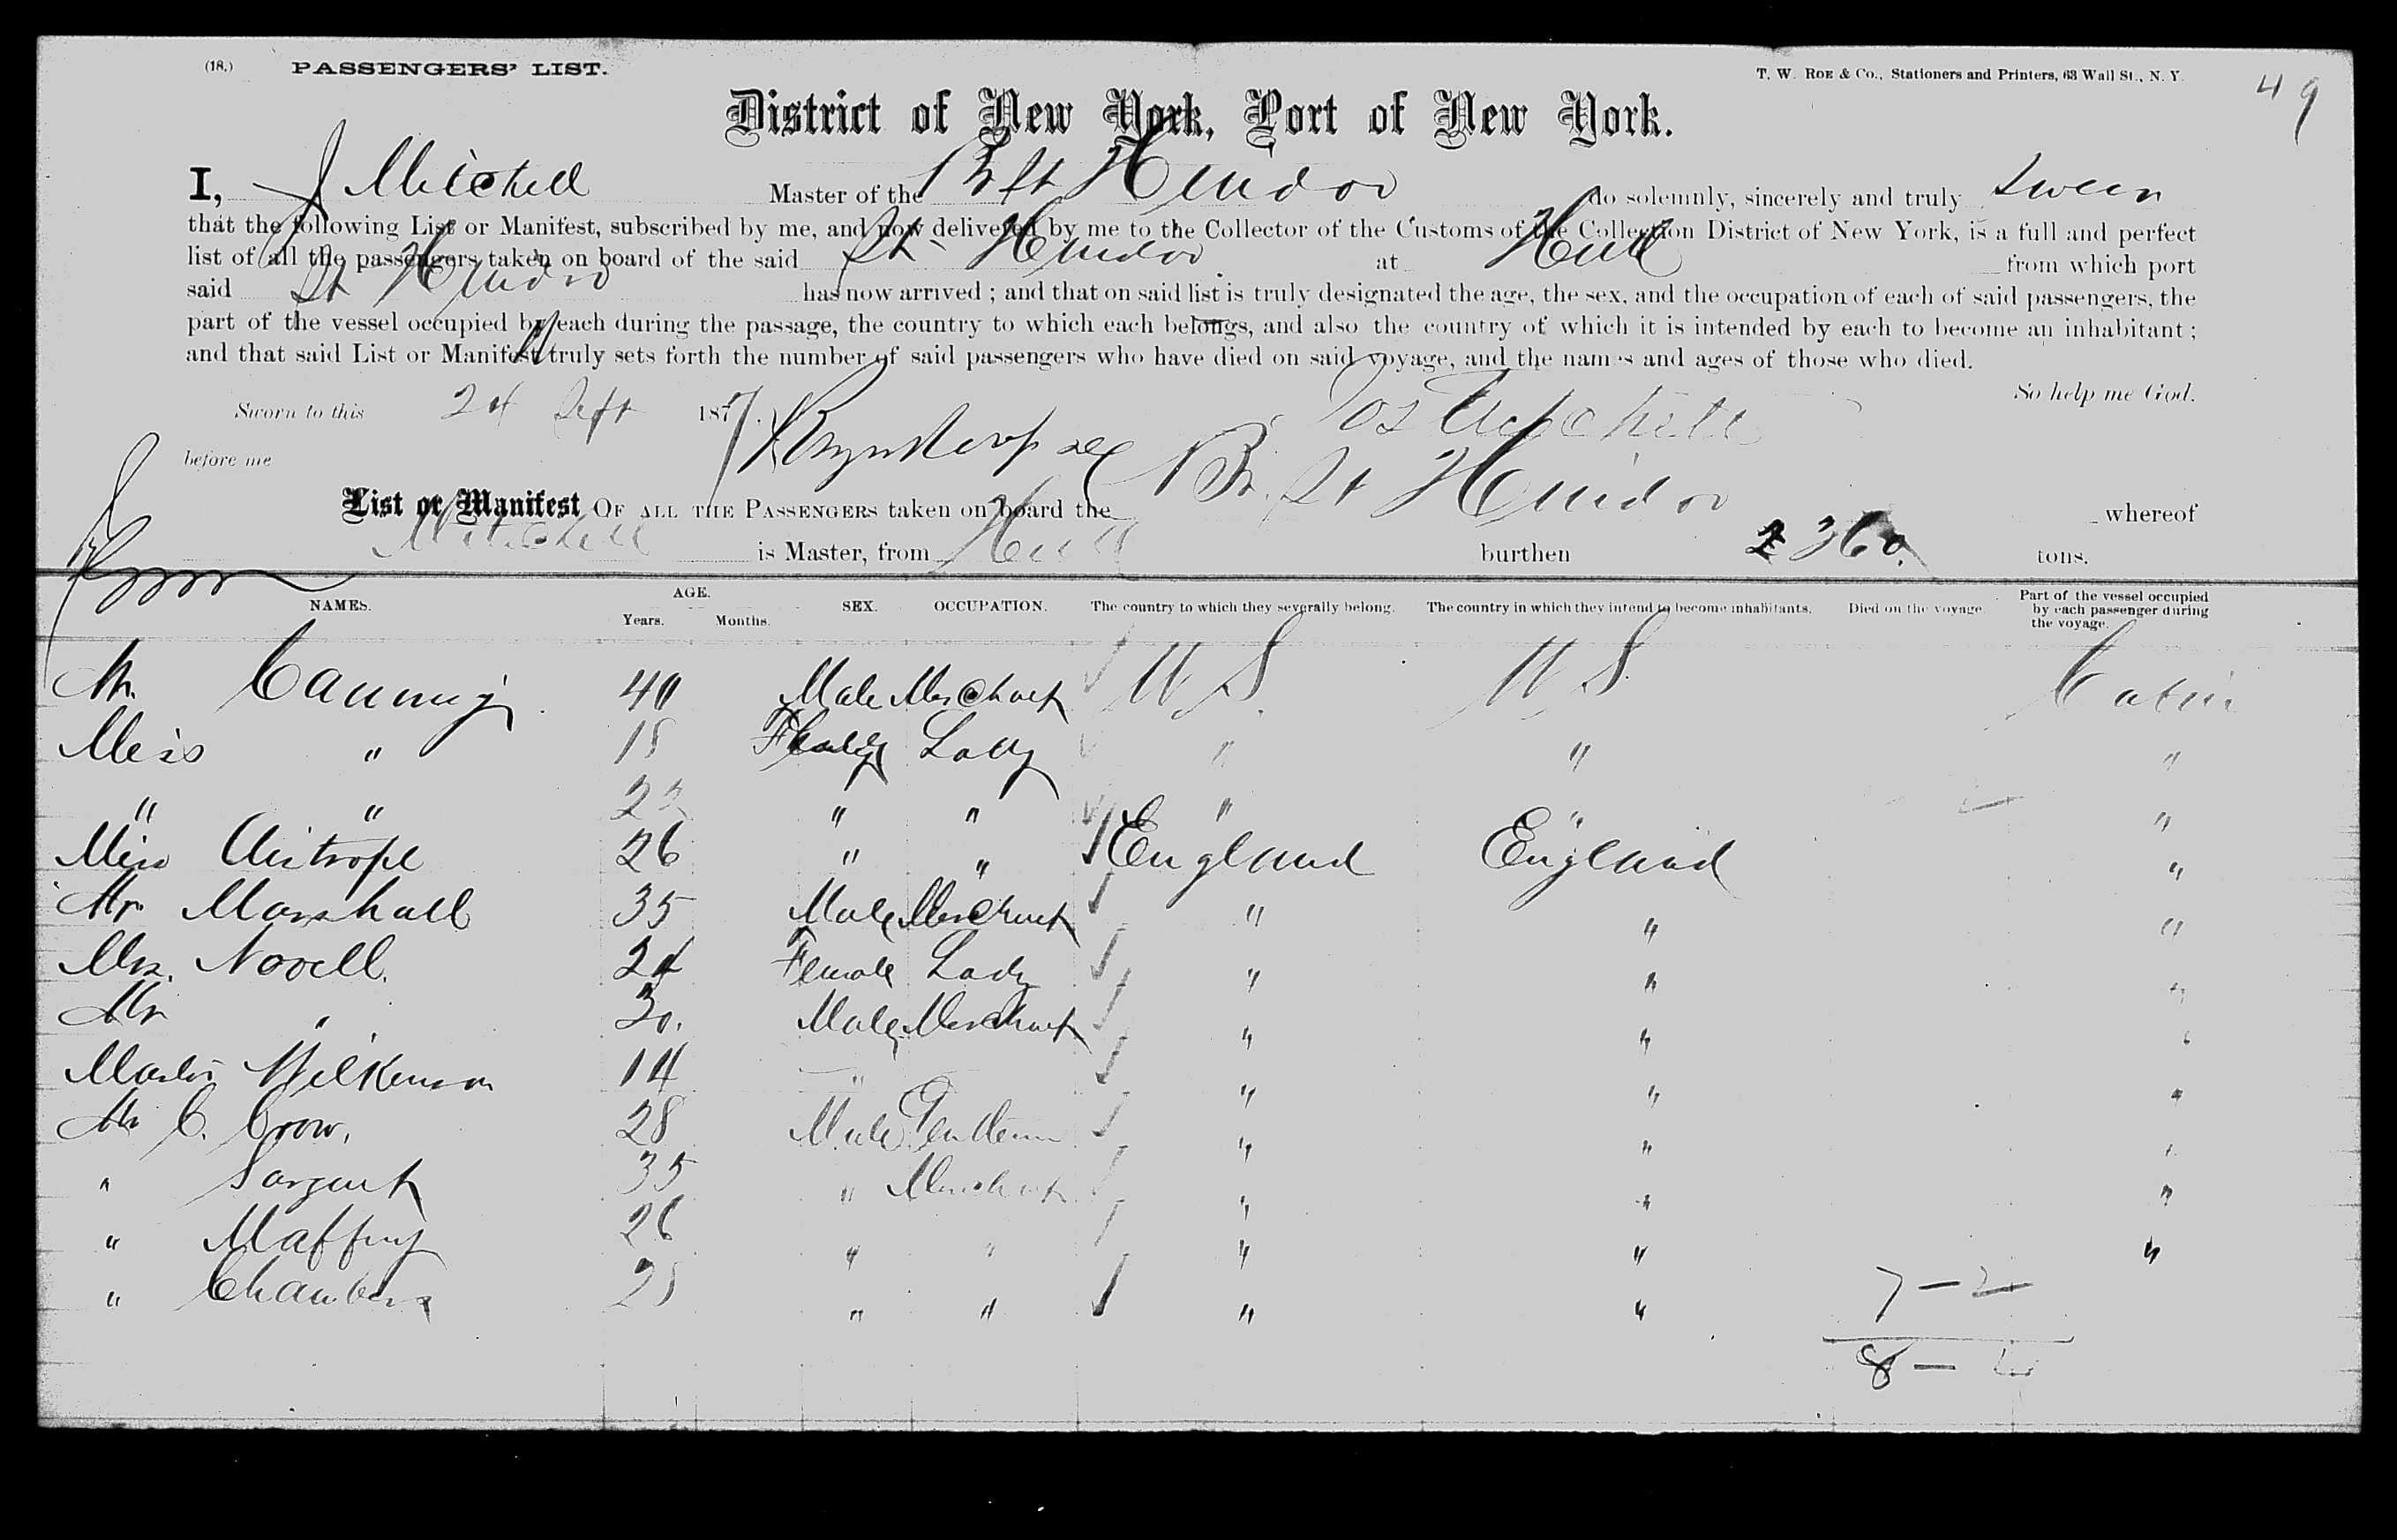 (18.) PASSENGERS' LIST. T. W. ROE & Co., Stationers and Printers, 63 Wall St., N. Y. 49
District of New York, Port of New York.
I, J Mitchell Master of the Br St Hindoo do solemnly, sincerely and truly swear
that the following List or Manifest, subscribed by me, and now delivered by me to the Collector of the Customs of the Collection District of New York, is a full and perfect
list of all the passengers taken on board of the said St Hindoo at Hull from which port
said St Hindoo has now arrived ; and that on said list is truly designated the age, the sex, and the occupation of each of said passengers, the
part of the vessel occupied by each during the passage, the country to which each belongs, and also the country of which it is intended by each to become an inhabitant ;
and that said List or Manifest truly sets forth the number of said passengers who have died on said voyage, and the names and ages of those who died.
So help me God.
Sworn to this 24 Sept 187 Jos Mitchell
before me
List or Manifest OF ALL THE PASSENGERS taken on board the Br. St Hindoo whereof
Mitchell is Master, from Hull burthen 2360 tons.
NAMES. AGE. Years. Months. SEX. OCCUPATION. The country to which they severally belong. The country in which they intend to become inhabitants. Died on the voyage. Part of the vessel occupied by each passenger during the voyage.
Mr. Canning 40 Male Merchant U S. U S. Cabin
Miss " 18 Lady " " "
" " 22 " " " " "
Miss 26 " " England England "
Mr Marshall 35 Male Merchant " " "
Mrs. Novell. 24 Female Lady " " "
Mr " 30. Male Merchant " " "
Master Wilkenson 14 " " " "
Mr C. Crow. 28 Male Gentleman " " "
" Sargent 35 " Merchant " " "
" 26 " " " " "
" Chambers " " " "
7 — 2
8 —